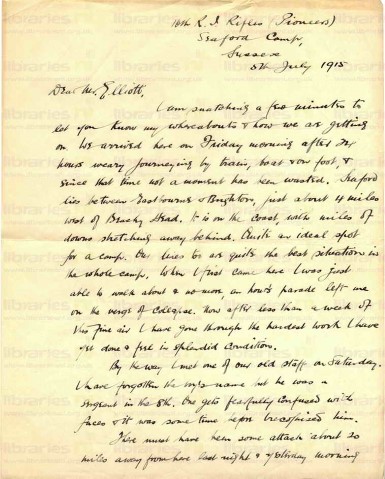 16th R. I. Rifles (Pioneers)
Seaford Camp,
Sussex
5th July 1915
Dear Mr. Elliott,
I am snatching a few minutes to
let you know my whereabouts & how we are getting
on. We arrived here on Friday morning after 24
hours weary journeying by train, boat & on foot, &
since that time not a moment has been wasted. Seaford
lies between Eastbourne & Brighton, just about 4 miles
west of Beachy Head. It is on the coast, with miles of
downs stretching away behind. Quite an ideal spot
for a camp. Our lines too are quite the best situation in
the whole camp. When I first came here I was just
able to walk about & no more, an hour's parade left me
on the verge of collapse. Now after less than a week of
this fine air I have gone through the hardest work I have
yet done & feel in splendid condition.
By the way I met one of our old staff on Saturday.
I have forgotten the boy's name but he was a
sergeant in the 8th. One gets fearfully confused with
faces & it was some time before I recognised him.
There must have been some attack about 20
miles away from here last night & yesterday morning
libraries